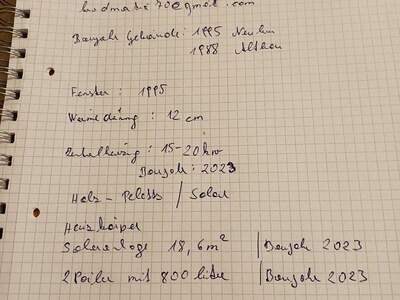 bodmate70@gmail.com
Baujah Gebäude: 1995 Neubau
1988 Altbau
Fenster : 1995
Wärmedämmg : 12 cm
Zentralheizung : 15-20 kw
Baujah : 2023
Holz - Pelets / Solar
Heizkörper
Solaranlage 18,6 m² | Baujah 2023
2 Boiler mit 800 liter | Baujah 2023